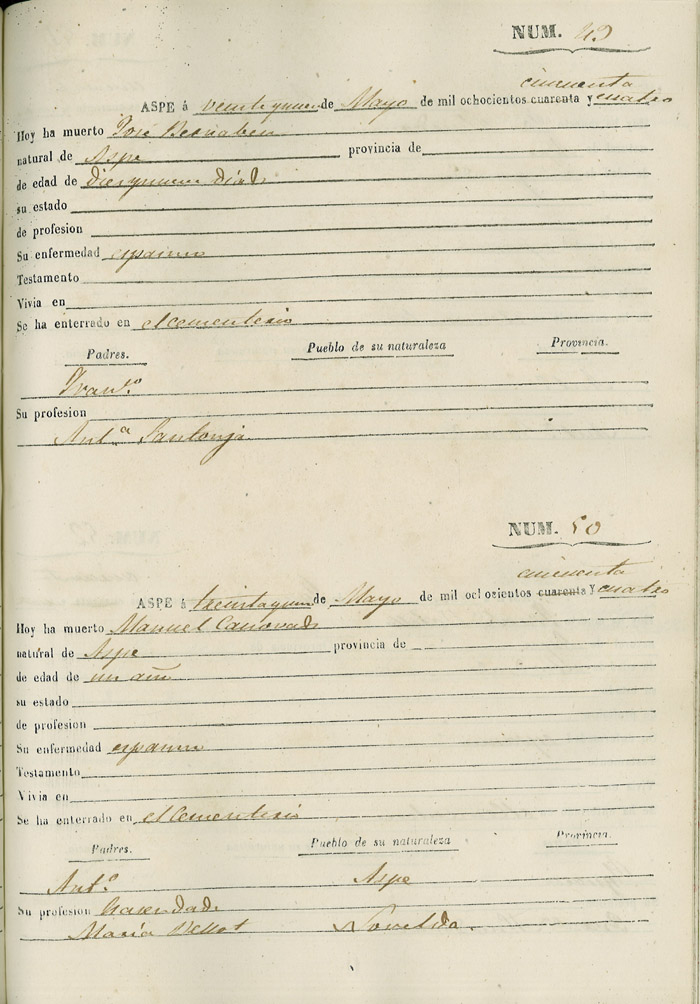 NUM. 49
cincuenta
ASPE á veintiynuebe de Mayo de mil ochocientos cuarenta y cuatro
Hoy ha muerto Jose Bernabeu
natural de Aspe provincia de
de edad de diesynueve dias
su estado
de profesion
Su enfermedad espasmo
Testamento
Vivia en
Se ha enterrado en el Cementerio
Padres. Pueblo de su naturaleza Provincia.
Fran.co
Su profesion
Ant.a Santonja
NUM. 50
cincuenta
ASPE á de Mayo de mil ochosientos cuarenta y cuatro
Hoy ha muerto Manuel Canovas
natural de Aspe provincia de
de edad de un año
su estado
de profesion
Su enfermedad espasmo
Testamento
Vivia en
Se ha enterrado en el Cementerio
Padres. Pueblo de su naturaleza Provincia.
Ant.o Aspe
Su profesion
Maria Bellot Novelda